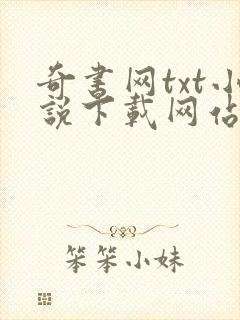 奇书网txt小
說下載网佔
笨笨小妹